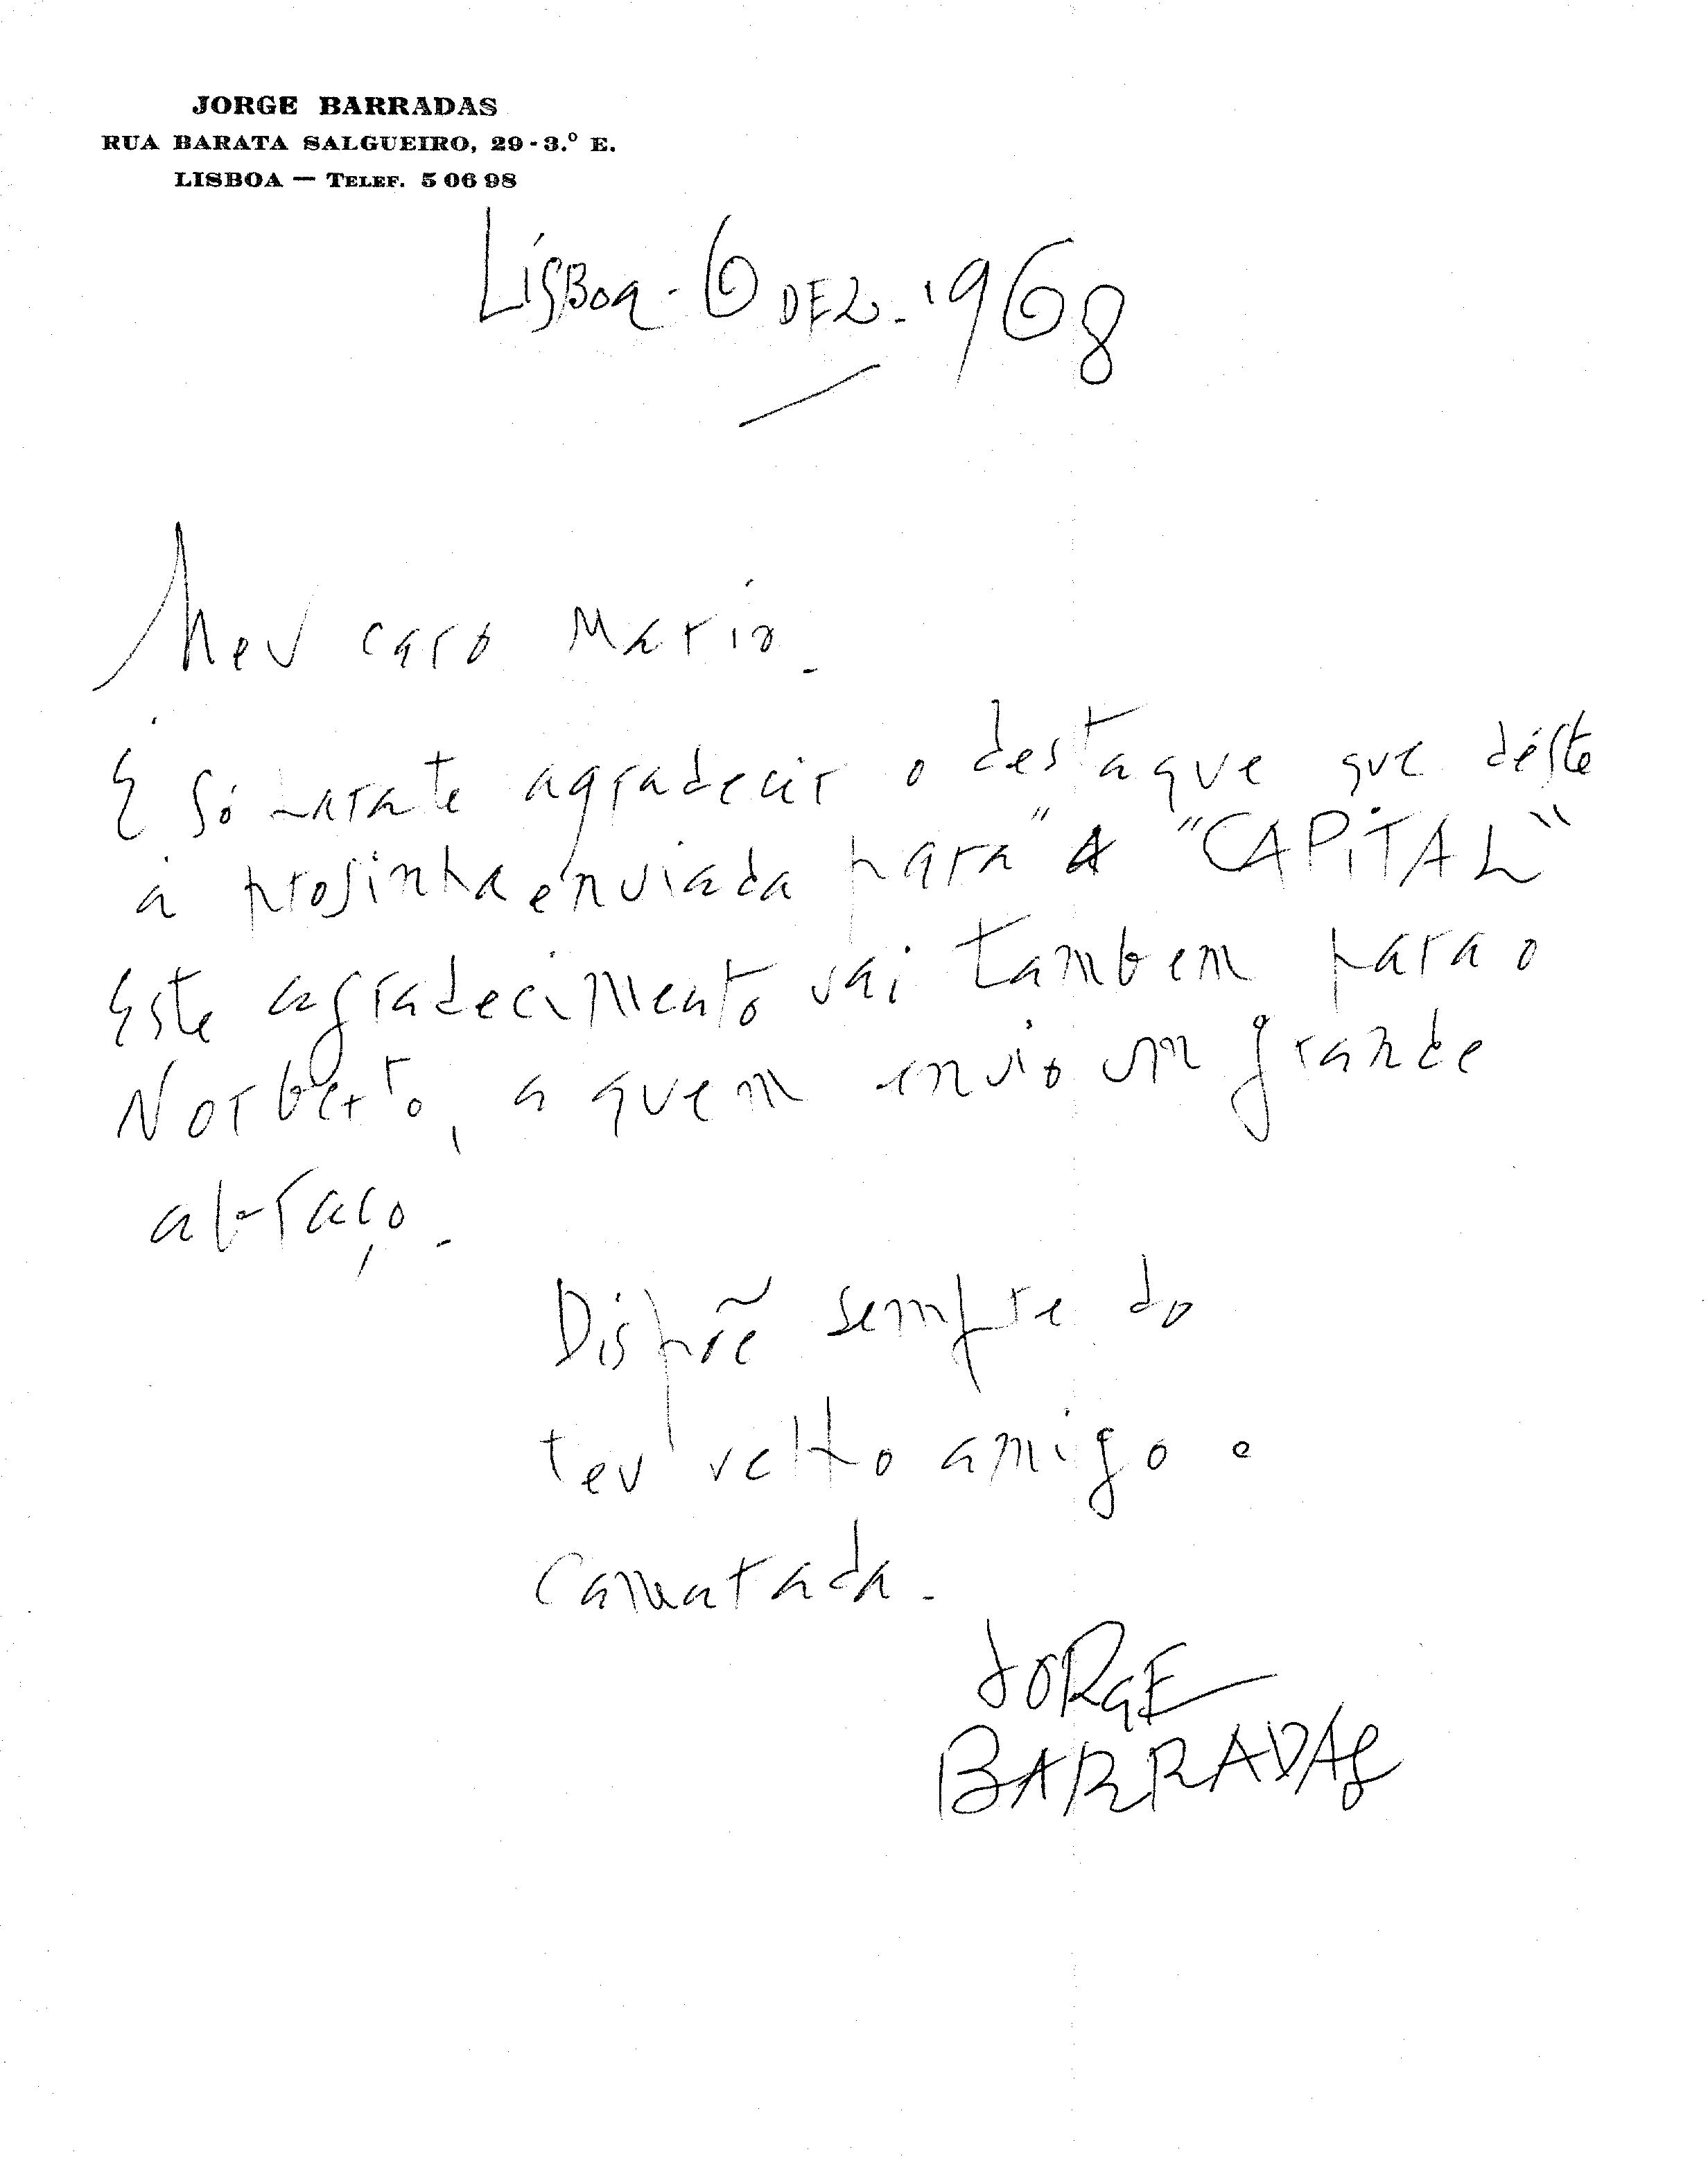 JORGE BARRADAS
RUA BARATA SALGUEIRO, 29-3.º E.
LISBOA — TELEF. 5 06 98
Lisboa - 6 DEZ. 1968
Meu caro Mario.
É só para te agradecer o destaque que déste
à prosinha enviada para "A "CAPiTAL"
Este agradecimento vai tambem para o
Norberto, a quem envio um grande
abraço.
Dispõe sempre do
teu velho amigo e
Camarada.
JORGE
BARRADAS